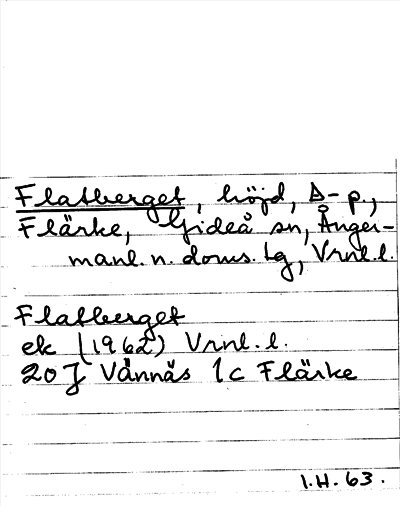 Flatberget, höjd, Δ-p.,
Flärke, Gideå sn, Ånger-
manl. n. doms. tg, Vrnl. l.
Flatberget
ek (1962) Vrnl. l.
20 J Vännäs 1c Flärke
I.H. 63.